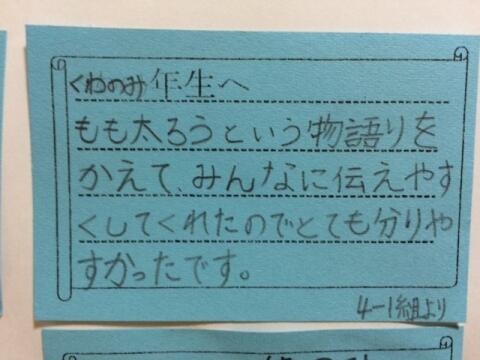 くわのみ年生へ
もも太ろうという物語りを
かえて、みんなに伝えやす
くしてくれたのでとても分りや
すかったです。
4-1組より